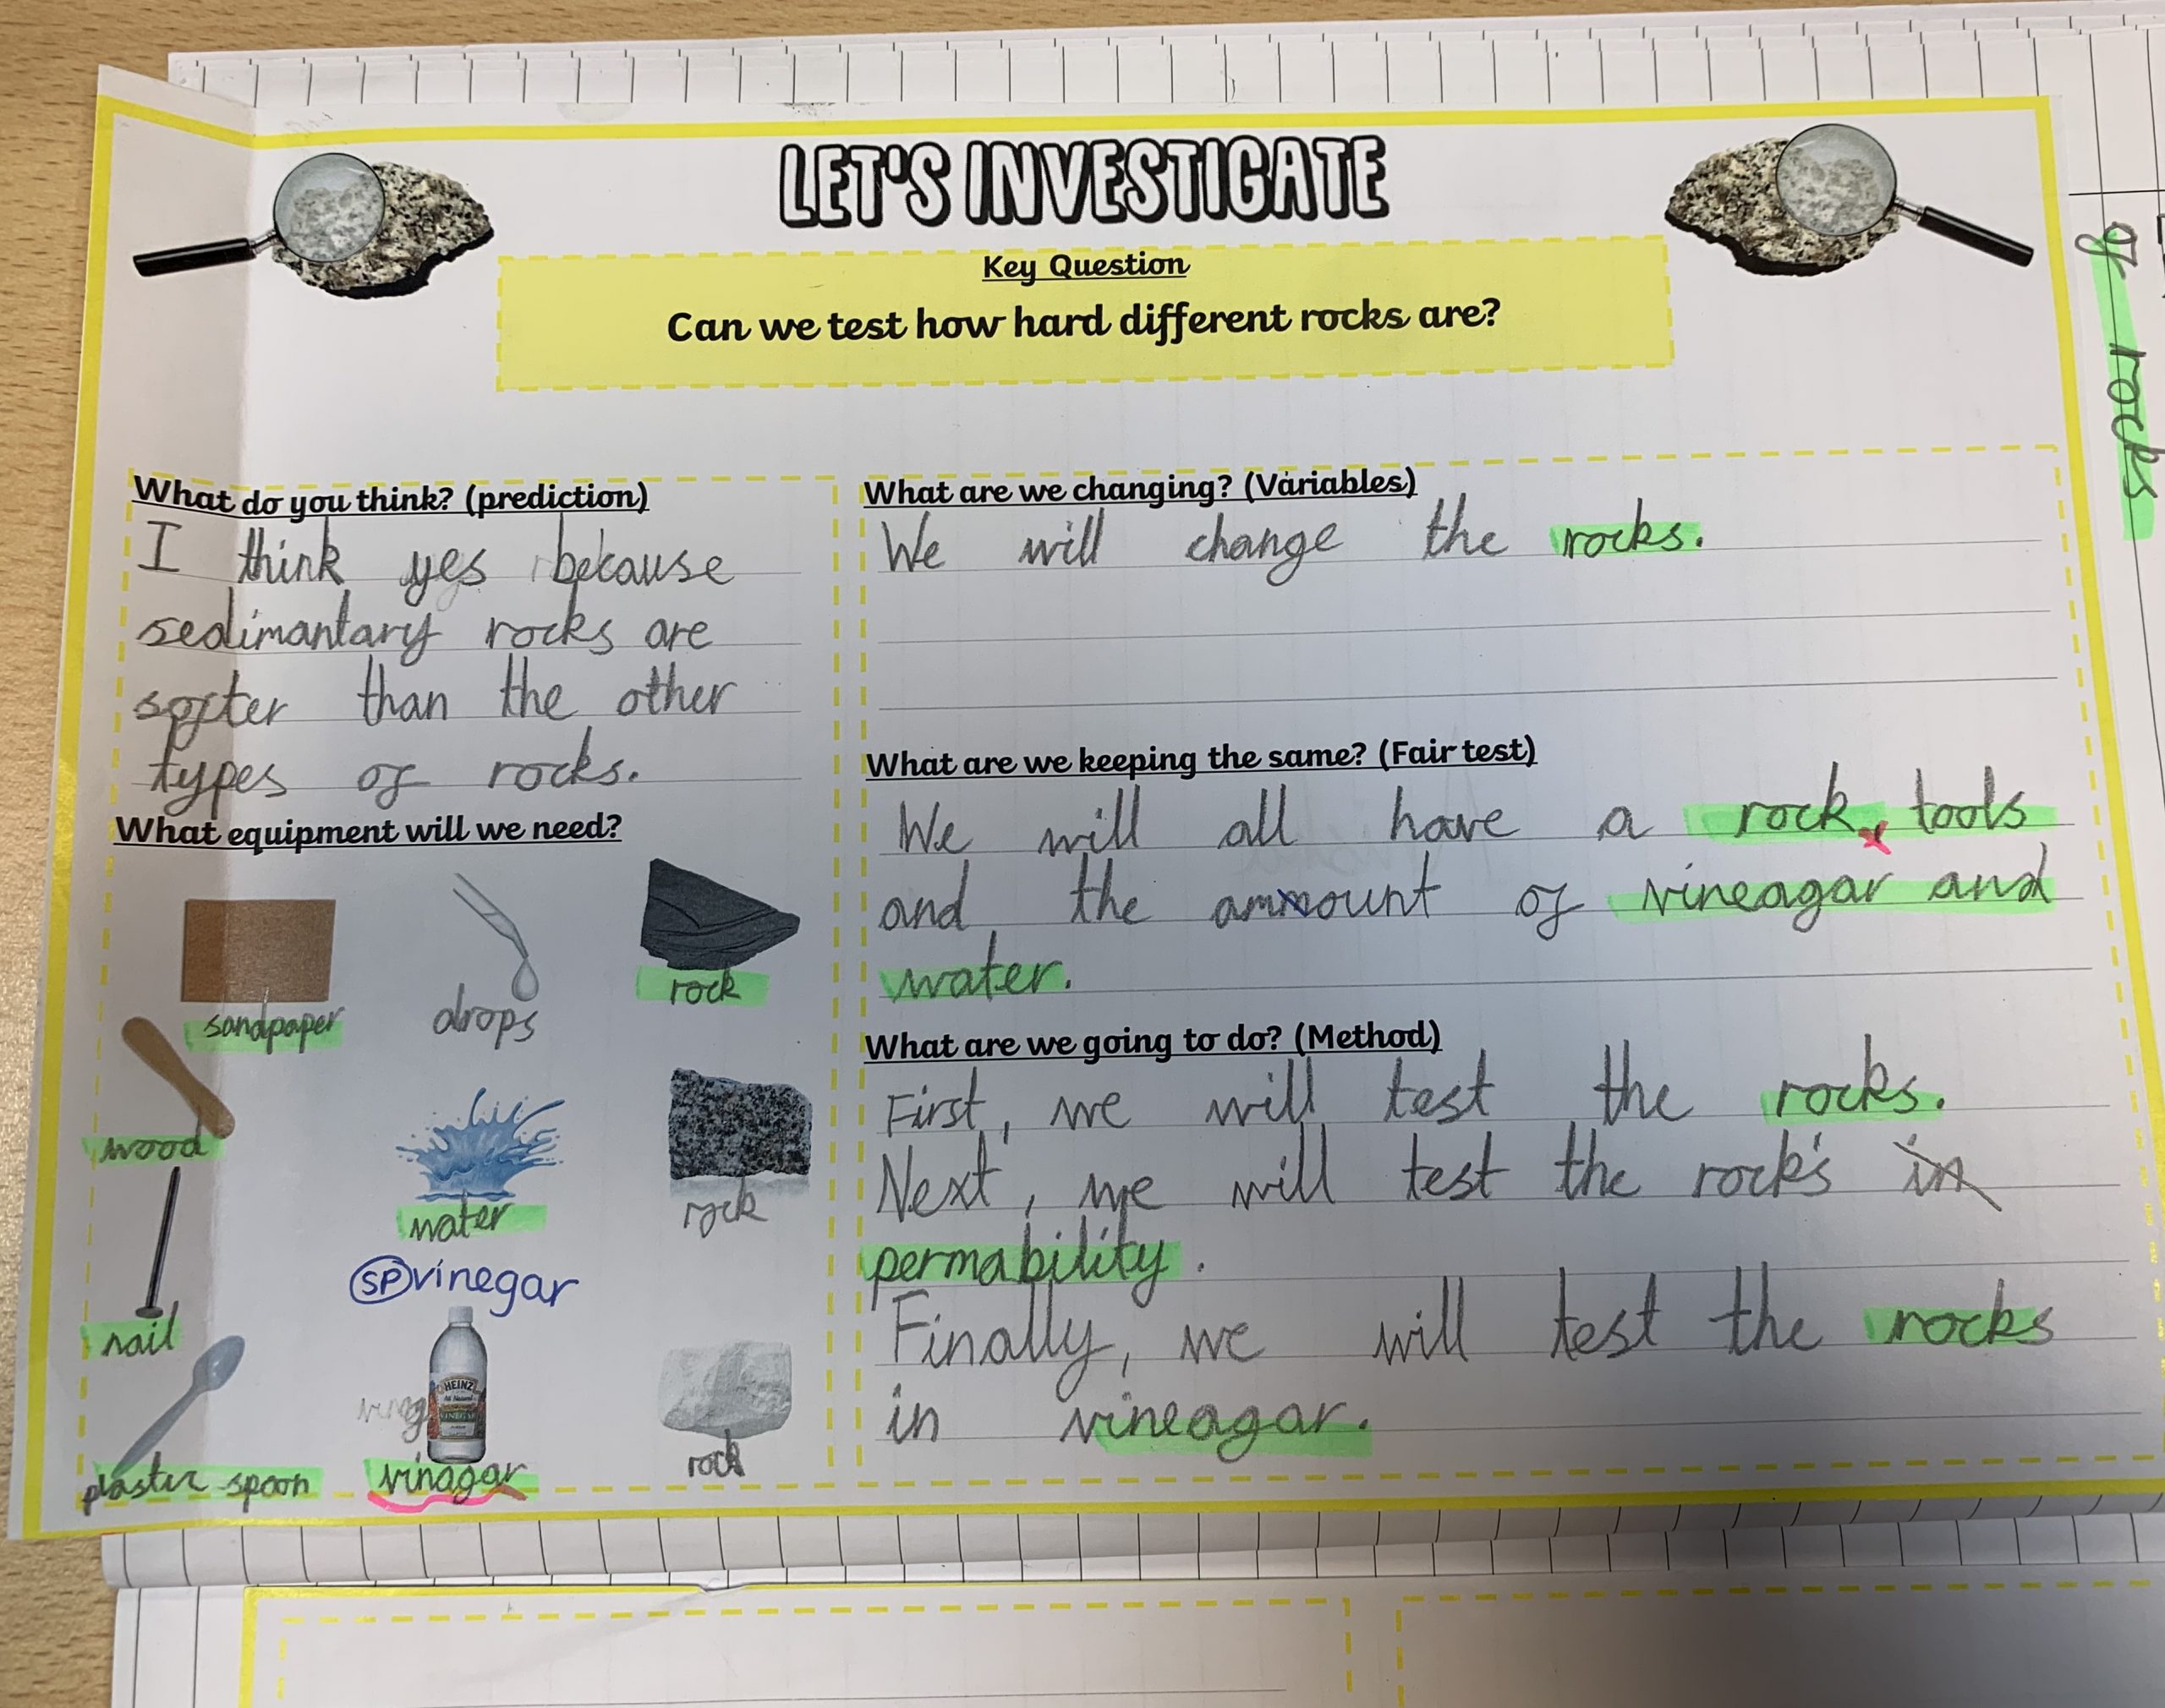 LET'S INVESTIGATE
Key Question
Can we test how hard different rocks are?
What do you think? (prediction)
I think yes because
sedimantary rocks are
softer than the other
types of rocks.
What equipment will we need?
sandpaper
drops
rock
wood
water
rock
nail
SP vinegar
HEINZ
All Natural
VINEGAR
vineg
plastic spoon
vinagar
rock
What are we changing? (Variables)
We will change the rocks.
What are we keeping the same? (Fair test)
We will all have a rock, tools
and the ammount of vineagar and
water.
What are we going to do? (Method)
First, we will test the rocks.
Next, we will test the rock's in
permability.
Finally, we will test the rocks
in vineagar.
of rocks